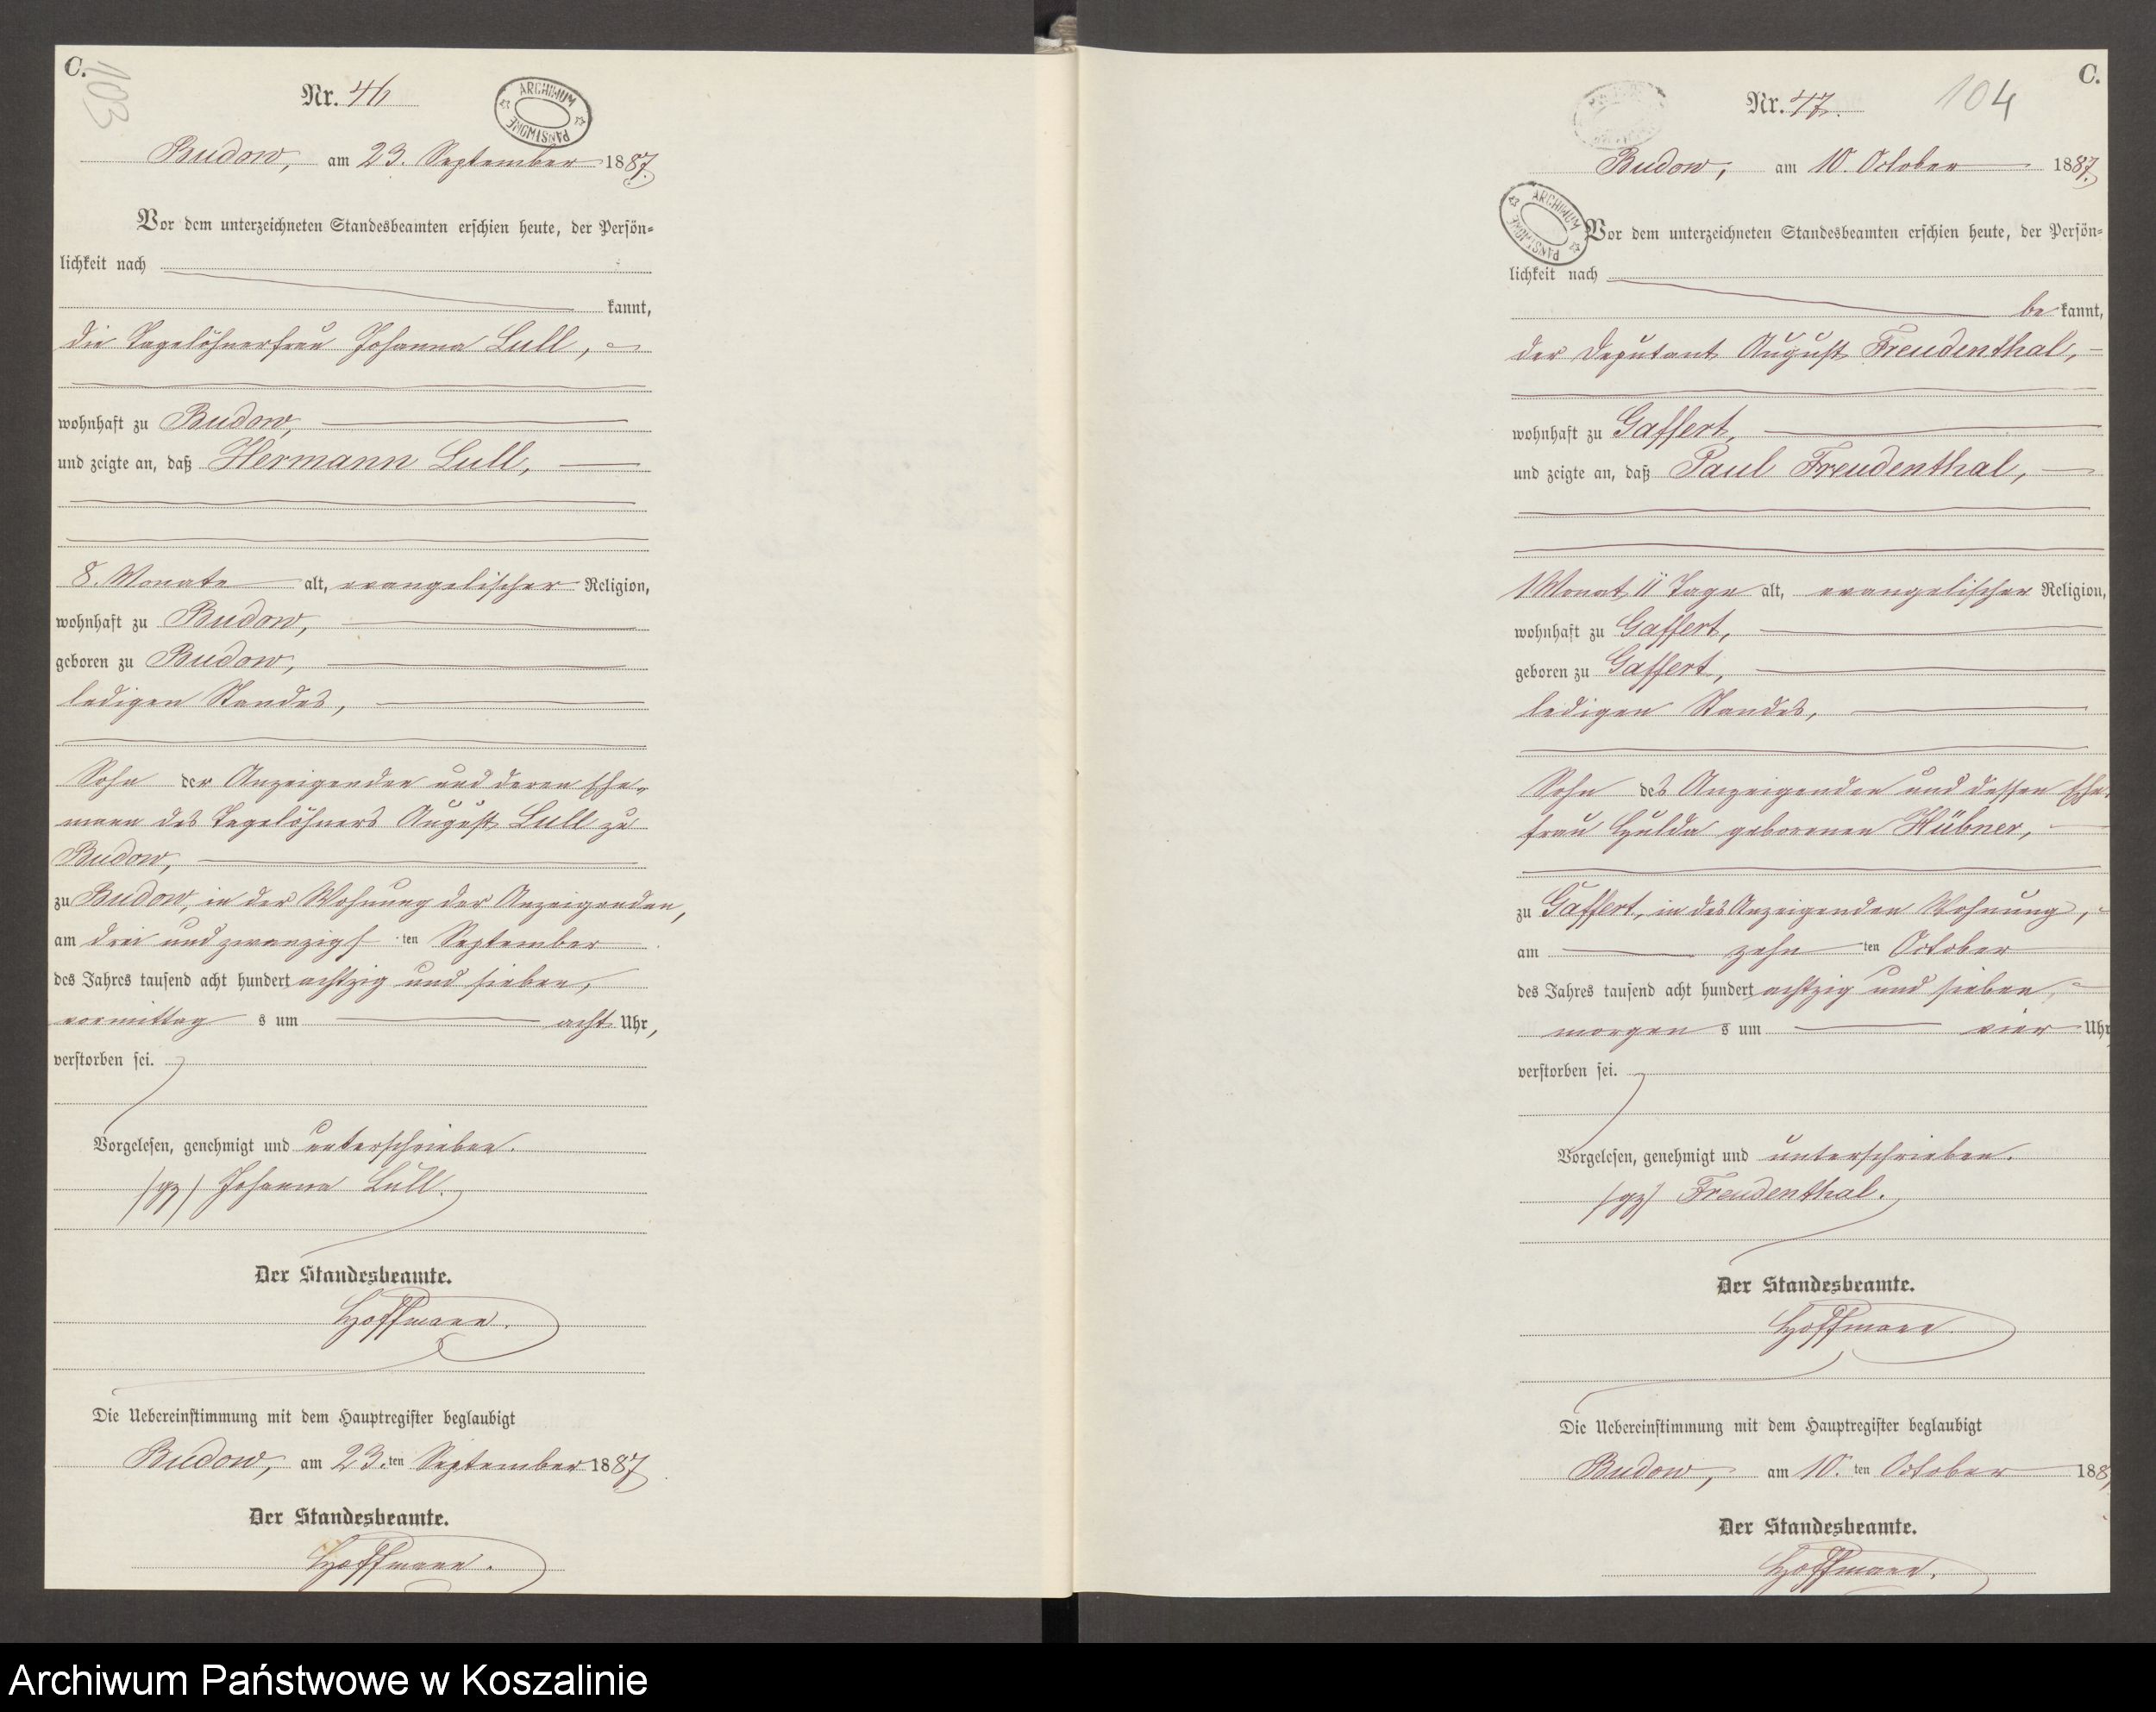 C.
103
Nr. 46
ARCHIWUM PAŃSTWOWE
Budow, am 23. September 1887.
Vor dem unterzeichneten Standesbeamten erschien heute, der Persön=
lichkeit nach
kannt,
die Tagelöhnerfrau Johanna Lull,
wohnhaft zu Budow,
und zeigte an, daß Hermann Lull,
8. Monate alt, evangelischer Religion,
wohnhaft zu Budow,
geboren zu Budow,
ledigen Standes,
Sohn der Anzeigenden und deren Ehe-
mann des Tagelöhners August Lull zu
Budow,
zu Budow, in der Wohnung der Anzeigenden,
am drei und zwanzigsten September
des Jahres tausend acht hundert achtzig und sieben,
vormittags um acht Uhr,
verstorben sei.
Vorgelesen, genehmigt und unterschrieben.
/gz/ Johanna Lull.
Der Standesbeamte.
Hoffmann.
Die Uebereinstimmung mit dem Hauptregister beglaubigt
Budow, am 23.ten September 1887
Der Standesbeamte.
Hoffmann.
C.
104
Nr. 47.
Budow, am 10. October 1887.
ARCHIWUM PAŃSTWOWE
Vor dem unterzeichneten Standesbeamten erschien heute, der Persön=
lichkeit nach
bekannt,
der Deputant August Freudenthal,
wohnhaft zu Gaffert,
und zeigte an, daß Paul Freudenthal,
1 Monat 11 Tage alt, evangelischer Religion,
wohnhaft zu Gaffert,
geboren zu Gaffert,
ledigen Standes,
Sohn des Anzeigenden und dessen Ehe-
frau Hulda geborenen Hübner,
zu Gaffert, in des Anzeigenden Wohnung,
am zehnten October
des Jahres tausend acht hundert achtzig und sieben,
morgens um vier Uhr
verstorben sei.
Vorgelesen, genehmigt und unterschrieben.
/gz/ Freudenthal.
Der Standesbeamte.
Hoffmann.
Die Uebereinstimmung mit dem Hauptregister beglaubigt
Budow, am 10.ten October 188
Der Standesbeamte.
Hoffmann.
Archiwum Państwowe w Koszalinie